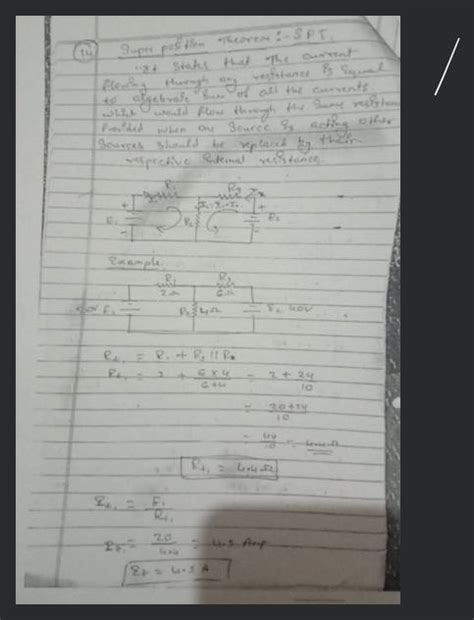 14
Super position Theorem :- S.P.T.
"It states that The current
flowing through any resistance is equal
to algebraic sum of all the currents
which would flow through the same resistance
Provided when one source is acting other
sources should be replaced by their
respective internal resistance
R1
+
+
E1
E2
-
-
Example.
R1
2Ω
6Ω
E1
4Ω
E2 40V
Rt1 = R1 + R2 || R3
Rt1 = 2 + 6×4/6+4 = 2 + 24/10
= 20+24/10
= 44/10 = 4.4Ω
Rt1 = 4.4Ω
It1 = E1/Rt1
It1 = 20/4.4 = 4.5 Amp
It = 4.5 A